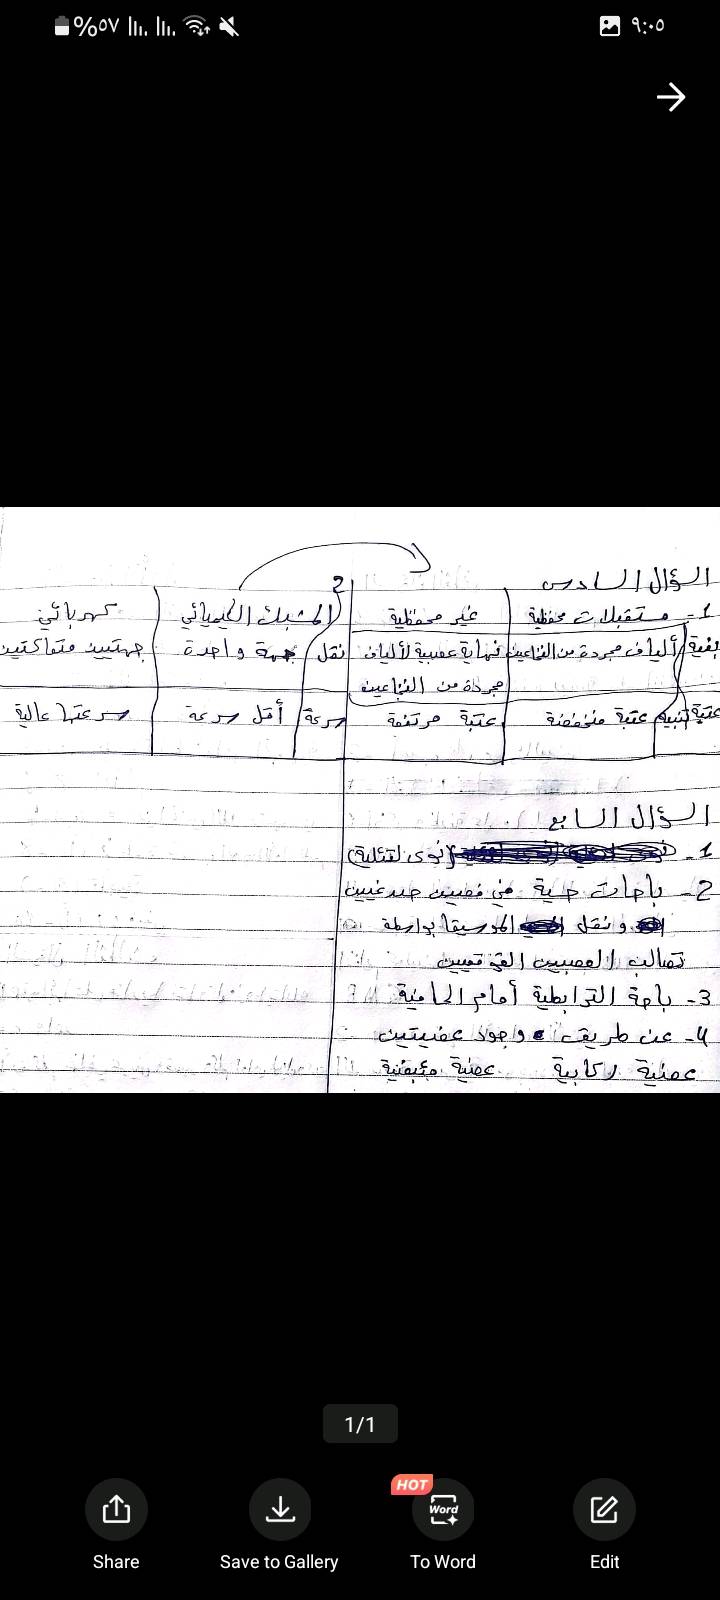 %٥٧
٩:٠٥
السؤال السادس
1- مستقبلات محفظية
غير محفظية
2
المشبك الكيميائي
كهربائي
ألياف مجردة من النخاعين
نهاية عصبية لألياف
مجردة من النخاعين
نقل
جهة واحدة
جهتين متعاكستين
عتبة تنبيه
عتبة منخفضة
عتبة مرتفعة
سرعة
أقل سرعة
سرعتها عالية
السؤال السابع
1-
2- باحات حسية في فصيين صدغيين
ونقل الموسيقا بواسطة
تصالب العصبين القوقعيين
3- باحة الترابطية أمام الجامية
4- عن طريق وجود عضيتين
عضية ركابية عضية
1/1
HOT
Word
Share
Save to Gallery
To Word
Edit